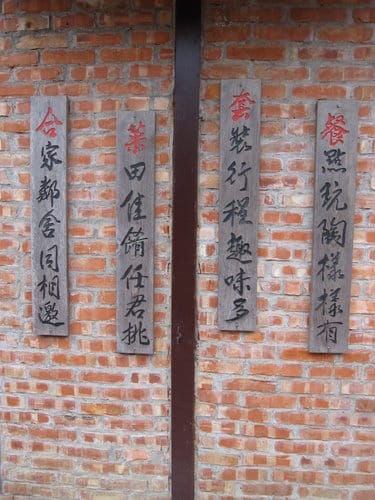 合家鄰舍同相邀
菜田佳餚任君挑
套裝行程趣味多
餐點玩陶樣樣有